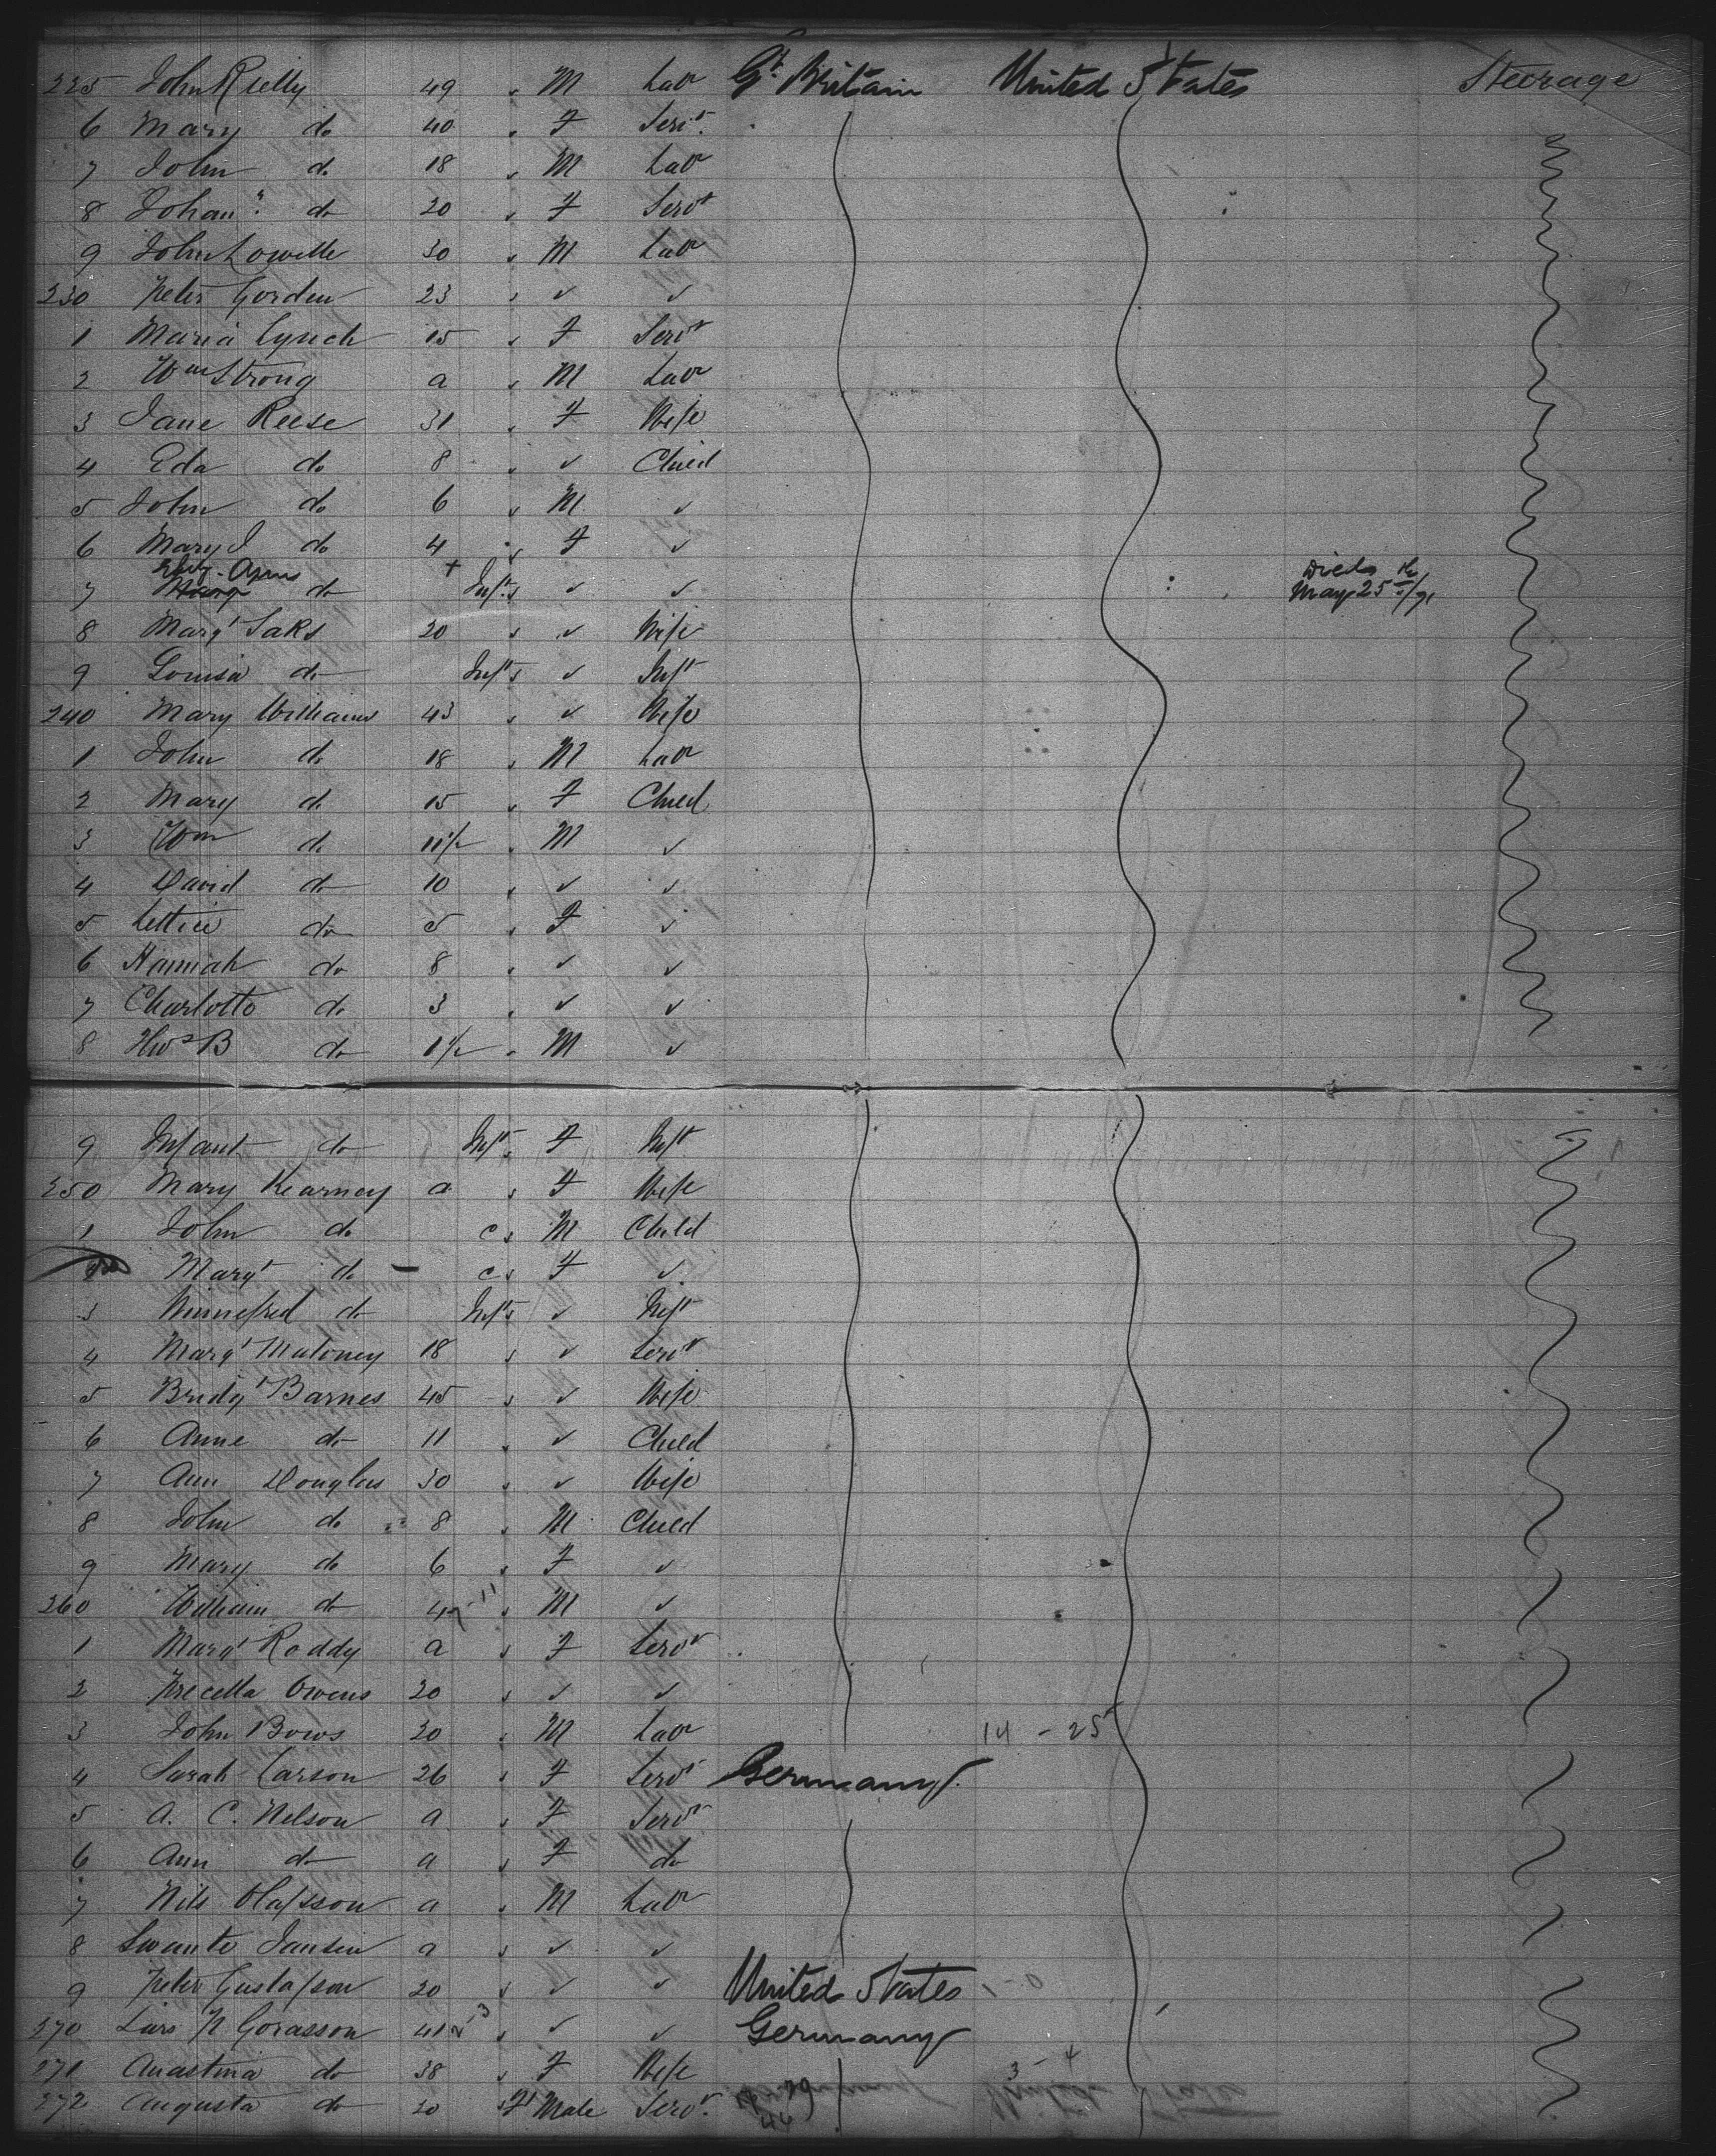 225 John Rielly 49 " M Labr Gt Britain United States Steerage
6 Mary do 40 " F Servt
7 John do 18 " M Labr
8 Johana do 20 " F Servt
9 John Lowelle 30 " M Labr
230 Peter Gorden 23 " " "
1 Maria Lynch 15 " F Servt
2 Wm Strong a " M Labr
3 Jane Reese 31 " F Wife
4 Eda do 8 " " Child
5 John do 6 " M "
6 Mary J do 4 " F "
7 do + Inft " " " Died May 25th/71
8 Margt Saks 20 " " Wife
9 Louisa do Inft " " Inft
240 Mary Williams 43 " " Wife
1 John do 18 " M Labr
2 Mary do 15 " F Child
3 Wm do 11½ " M "
4 David do 10 " " "
5 Lettice do 5 " F "
6 Hannah do 8 " " "
7 Charlotte do 3 " " "
8 B do 1½ " M "
9 Infant do Inft " F Inft
250 Mary Kearney a " F Wife
1 John do c " M Child
Margt do — c " F "
3 Winnefred do Inft " " Inft
4 Margt Maloney 18 " " Servt
5 Bridgt Barnes 45 " " Wife
6 Anne do 11 " " Child
7 Ann Douglas 30 " " Wife
8 John do 8 " M Child
9 Mary do 6 " F "
260 William do 4 " M "
1 Margt Roddy a " F Servt
2 Precella Owens 20 " " "
3 John Bows 20 " M Labr 14 - 25
4 Sarah Carson 26 " F Servt Germany
5 A. C. Nelson a " F Servt
6 Ann do a " F do
7 Nils Olafsson a " M Labr
8 Swante Jansen a " " "
9 Peter Gustafson 20 " " " United States 1-0
270 Lars N Gorasson 41 " " " Germany
271 Anastina do 38 " F Wife 3-4
272 Augusta do 20 " F Male Servt